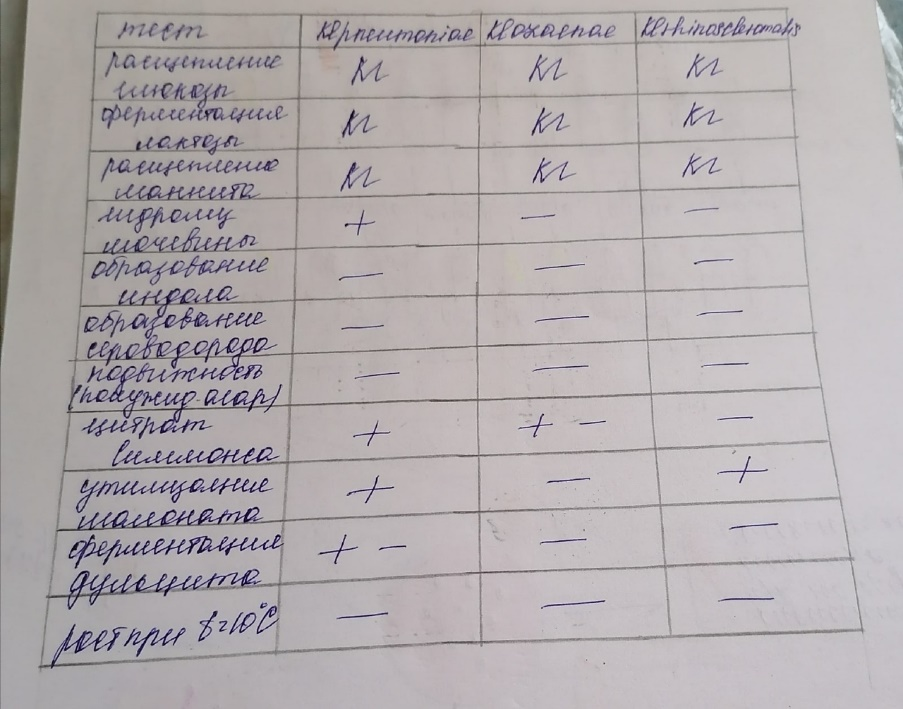 тест Kl pneumoniae Kl ozaenae Kl rhinoscleromatis
расщепление
глюкозы КГ КГ КГ
ферментация
лактозы КГ КГ КГ
расщепление
маннита КГ КГ КГ
гидролиз
мочевины + — —
образование
индола — — —
образование
сероводорода — — —
подвижность
(полужид. агар) — — —
цитрат
Симмонса + + − —
утилизация
малоната + — +
ферментация
дульцита + − — —
рост при t=10°C — — —